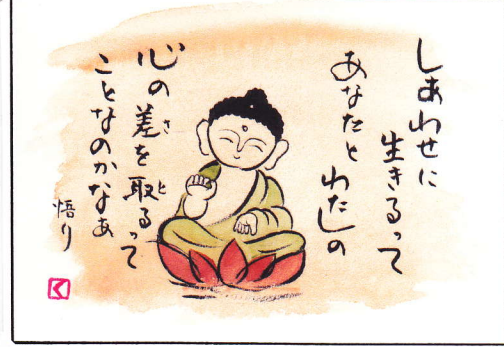 しあわせに
生きるって
あなたと わたしの
心の差を取るって
さ
と
ことなのかなぁ
悟り
く